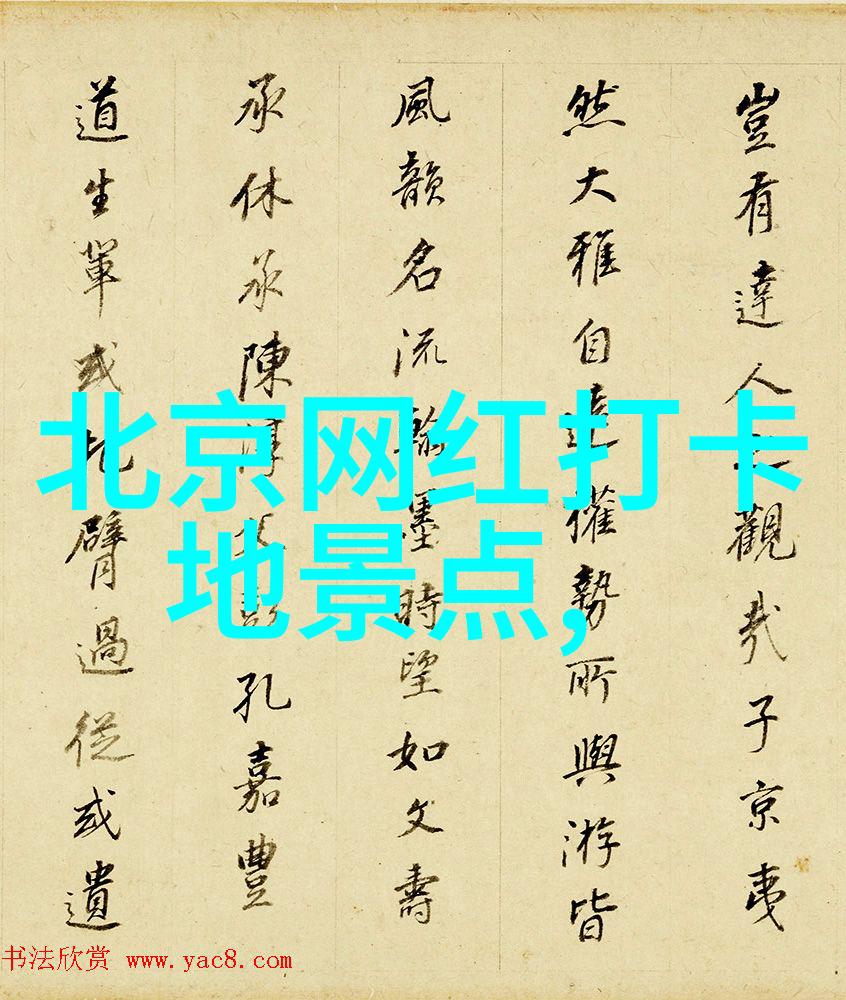 豈有達人之觀哉子京夷
然大雅自遠權勢所與游皆
風韻名流翰墨時望如文壽
承休承陳淳父彭孔嘉豐
道生輩或把臂過從或遺
北京网红打卡
地景点,
书法欣赏 www.yac8.com